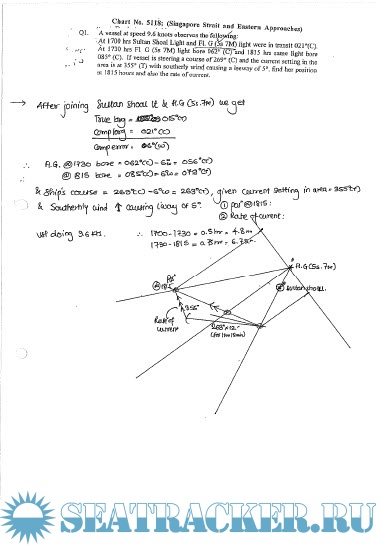 Chart No. 5118: (Singapore Strait and Eastern Approaches)
Q1. A vessel at speed 9.6 knots observes the following:
At 1700 hrs Sultan Shoal Light and Fl. G (5s 7M) light were in transit 021°(C).
At 1730 hrs Fl. G (5s 7M) light bore 062° (C) and 1815 hrs same light bore
085° (C). If vessel is steering a course of 269° (C) and the current setting in the
area is at 355° (T) with southerly wind causing a leeway of 5°. find her position
in 1815 hours and also the rate of current.
→ After joining Sultan Shoal Lt & Fl.G (5s.7m) we get
True brg = 015°(T)
Comp brg = 021°(C)
Comp error = 06°(W)
∴ Fl.G. @ 1730 bore = 062°(C) - 6°w = 056°(T)
@ 1815 bore = 085°(C) - 6°w = 079°(T)
& ship's course = 269°(C) - 6°w = 263°(T), given current setting in area = 355°(T)
& Southerly wind ↑ causing l'way of 5°. ① Posn @ 1815:
② Rate of current:
Vsl doing 9.6 kts. ∴ 1700-1730 = 0.5hr = 4.8m
1730-1815 =
Fl.G (5s.7m)
Sultan shoal.
@ 1815
355°
Rate of
current